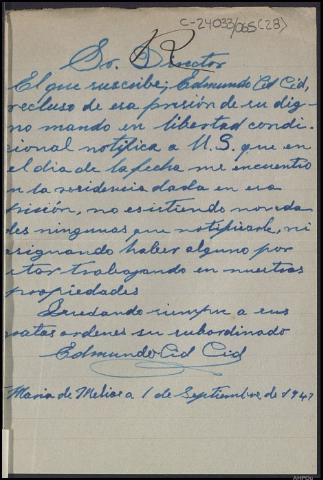 C-24033/065(28)
Sr. Director
El que suscribe; Edmundo Cid Cid,
recluso de esa prision de su dig-
no mando en libertad condi-
cional notifica a U.S. que en
el dia de la fecha me encuentro
en la residencia dada en esa
prisión, no existiendo noveda
des ningunas que notificarle, ni
asignando haber alguno por
estar trabajando en nuestras
propiedades
Quedando siempre a sus
gratas ordenes su subordinado
Edmundo Cid Cid
Maria de Melias a 1 de Septiembre, de 194
AHPOu